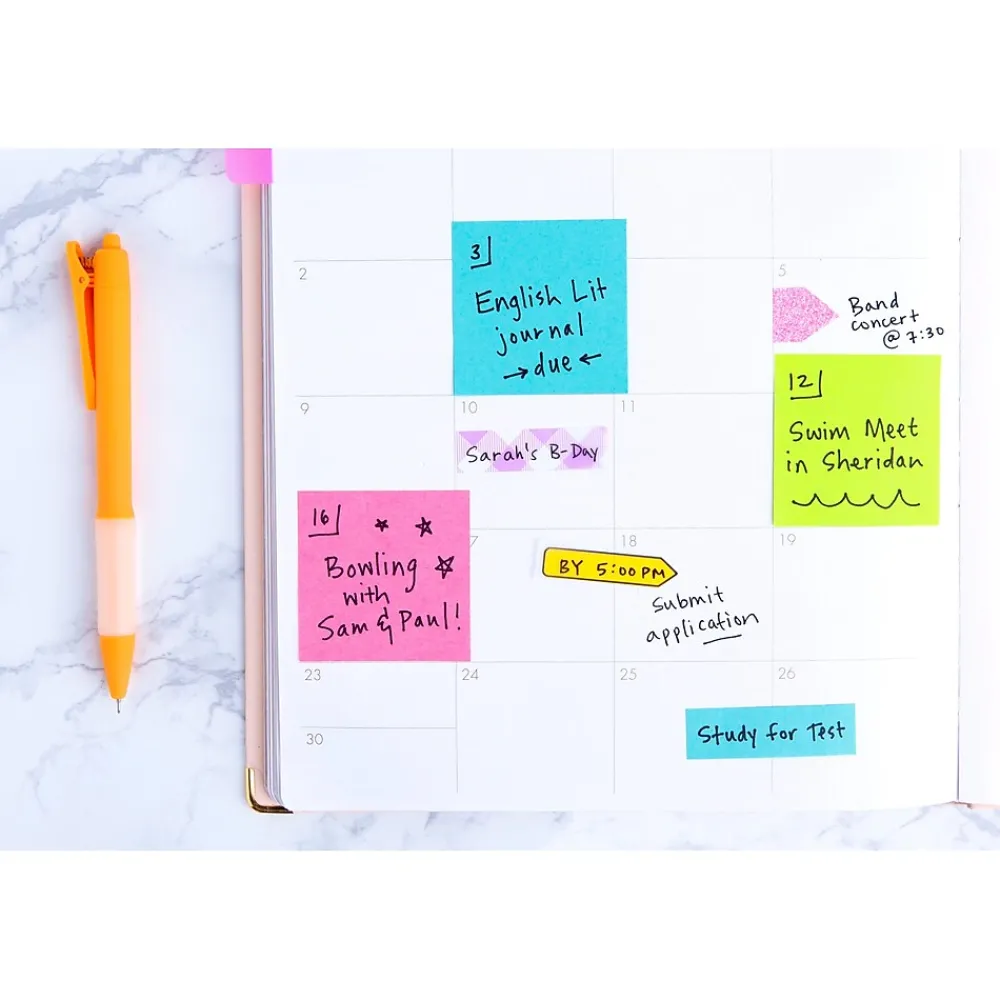 2
3
English Lit
journal
→due←
5
Band
concert
@ 7:30
9
10
Sarah's B-Day
11
12
Swim Meet
in Sheridan
16
Bowling
with
Sam & Paul!
7
18
BY 5:00 PM
Submit
application
19
23
24
25
26
Study for Test
30